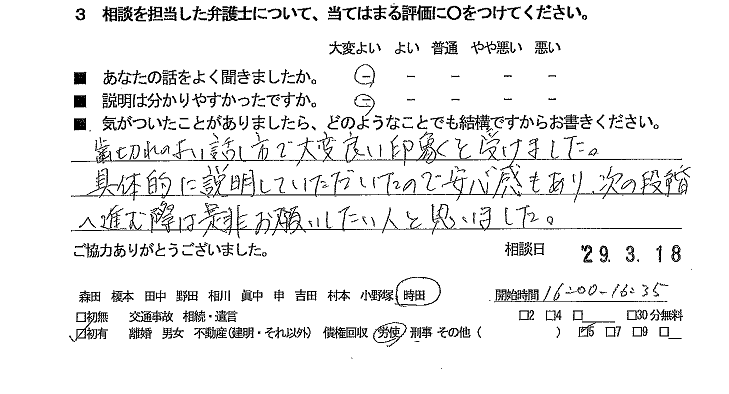 3 相談を担当した弁護士について、当てはまる評価に〇をつけてください。
大変よい よい 普通 やや悪い 悪い
■ あなたの話をよく聞きましたか。 － － － － －
■ 説明は分かりやすかったですか。 － － － － －
■ 気がついたことがありましたら、どのようなことでも結構ですからお書きください。
歯切れのよい話し方で大変良い印象を受けました。
具体的に説明していただいたので安心感もあり、次の段階
へ進む際は是非お願いしたい人と思いました。
ご協力ありがとうございました。 相談日 '29.3.18
森田 榎本 田中 野田 相川 眞中 申 吉田 村本 小野塚 時田 開始時間 16:00-16:35
□初無 交通事故 相続・遺言 □2 □4 □ □30分無料
□初有 離婚 男女 不動産(建明・それ以外) 債権回収 労使 刑事 その他 ( ) □5 □7 □9 □